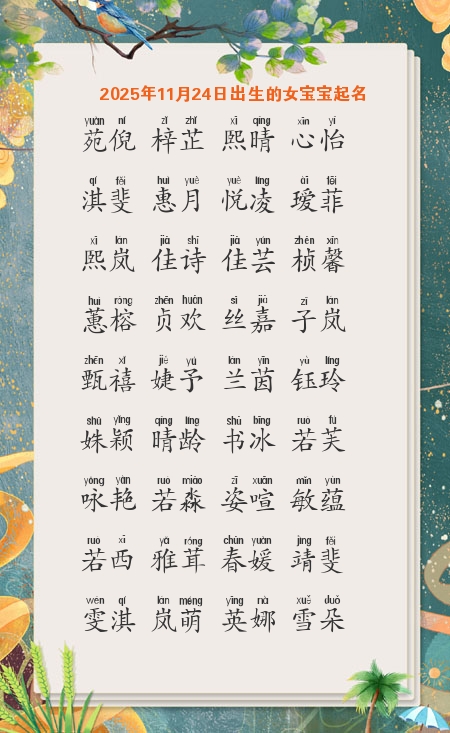 2025年11月24日出生的女宝宝起名
yuàn ní zǐ zhǐ xī qíng xīn yí
苑倪 梓芷 熙晴 心怡
qí fěi huì yuè yuè líng ài fēi
淇斐 惠月 悦凌 瑷菲
xī lán jiā shī jiā yún zhēn xīn
熙岚 佳诗 佳芸 桢馨
huì róng zhēn huān sī jiā zǐ lán
蕙榕 贞欢 丝嘉 子岚
zhēn xǐ jié yǔ lán yīn yù líng
甄禧 婕予 兰茵 钰玲
shū yǐng qíng líng shū bīng ruò fú
姝颖 晴龄 书冰 若芙
yǒng yàn ruò miǎo zī xuān mǐn yùn
咏艳 若淼 姿喧 敏蕴
ruò xī yǎ róng chūn yuán jìng fěi
若西 雅茸 春媛 靖斐
wén qí lán méng yīng nà xuě duǒ
雯淇 岚萌 英娜 雪朵